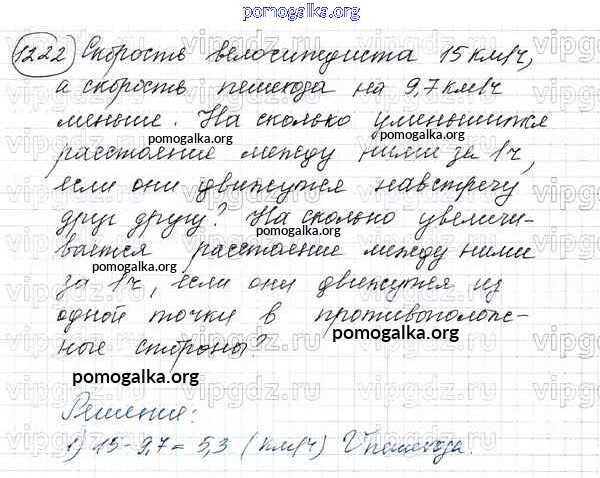 pomogalka.org
1222 Скорость велосипедиста 15 км/ч,
а скорость пешехода на 9,7 км/ч
меньше. На сколько уменьшится
pomogalka.org pomogalka.org
расстояние между ними за 1 ч,
если они движутся навстречу
друг другу? На сколько увеличи-
вается расстояние между ними
pomogalka.org pomogalka.org
за 1 ч, если они движутся из
одной точки в противополож-
ные стороны?
pomogalka.org
pomogalka.org
Решение:
1) 15 - 9,7 = 5,3 (км/ч) V пешехода.